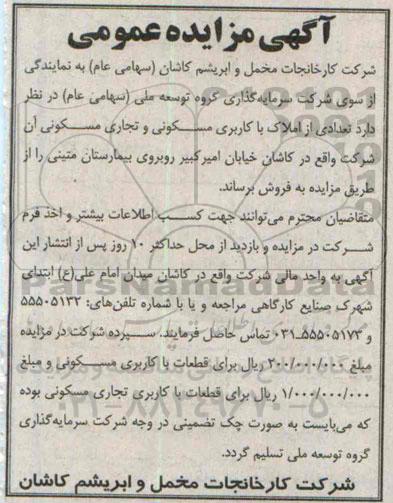 آگهی مزایده عمومی
شرکت کارخانجات مخمل و ابریشم کاشان (سهامی عام) به نمایندگی
از سوی شرکت سرمایه‌گذاری گروه توسعه ملی (سهامی عام) در نظر
دارد تعدادی از املاک با کاربری مسکونی و تجاری مسکونی آن
شرکت واقع در کاشان خیابان امیرکبیر روبروی بیمارستان متینی را از
طریق مزایده به فروش برساند.
متقاضیان محترم می‌توانند جهت کسب اطلاعات بیشتر و اخذ فرم
شرکت در مزایده و بازدید از محل حداکثر ۱۰ روز پس از انتشار این
آگهی به واحد مالی شرکت واقع در کاشان میدان امام علی(ع) ابتدای
شهرک صنایع کارگاهی مراجعه و یا با شماره تلفن‌های: ۵۵۵۰۵۱۳۲
و ۵۵۵۰۵۱۷۳-۰۳۱ تماس حاصل فرمایند. سپرده شرکت در مزایده
مبلغ ۲۰۰/۰۰۰/۰۰۰ ریال برای قطعات با کاربری مسکونی و مبلغ
۱/۰۰۰/۰۰۰/۰۰۰ ریال برای قطعات با کاربری تجاری مسکونی بوده
که می‌بایست به صورت چک تضمینی در وجه شرکت سرمایه‌گذاری
گروه توسعه ملی تسلیم گردد.
شرکت کارخانجات مخمل و ابریشم کاشان
ParsNamadData
۰۲۱-۸۸۳۴۹۶۷۰-۵